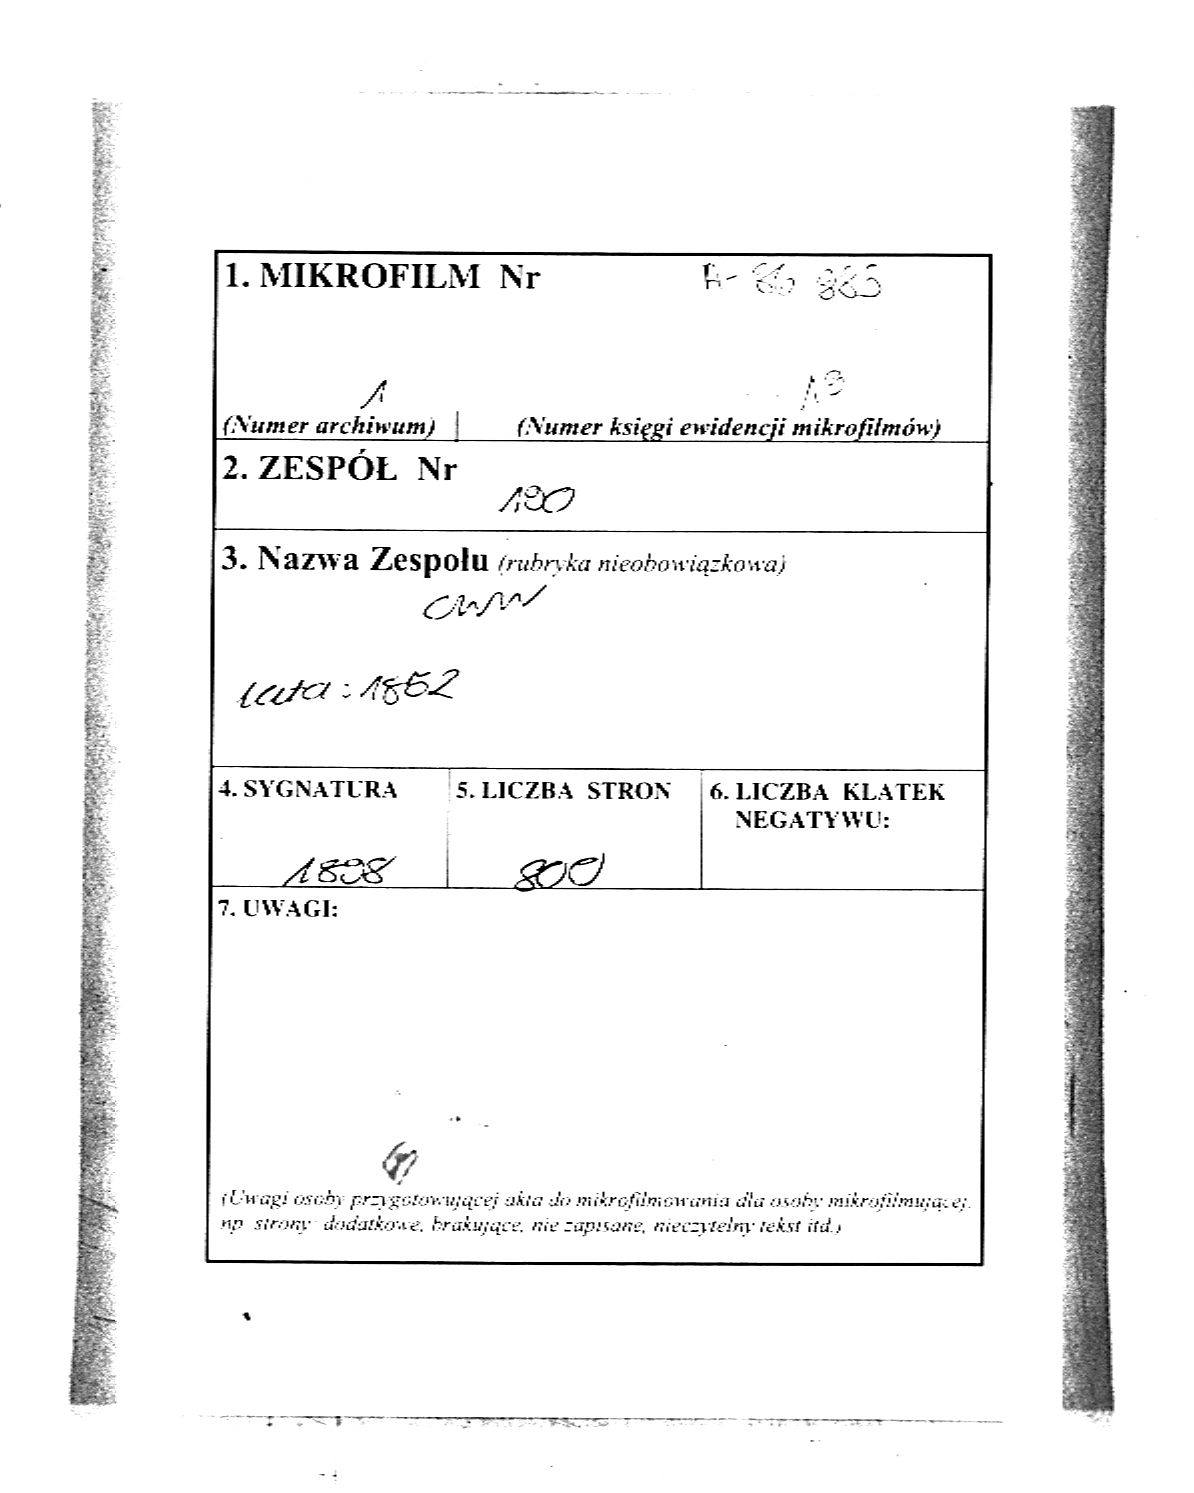 1. MIKROFILM Nr A- 86 885
1 19
(Numer archiwum) (Numer księgi ewidencji mikrofilmów)
2. ZESPÓŁ Nr
190
3. Nazwa Zespołu (rubryka nieobowiązkowa)
CWW
lata : 1852
4. SYGNATURA 5. LICZBA STRON 6. LICZBA KLATEK
NEGATYWU:
1898 800
7. UWAGI:
(Uwagi osoby przygotowującej akta do mikrofilmowania dla osoby mikrofilmującej,
np. strony dodatkowe, brakujące, nie zapisane, nieczytelny tekst itd.)